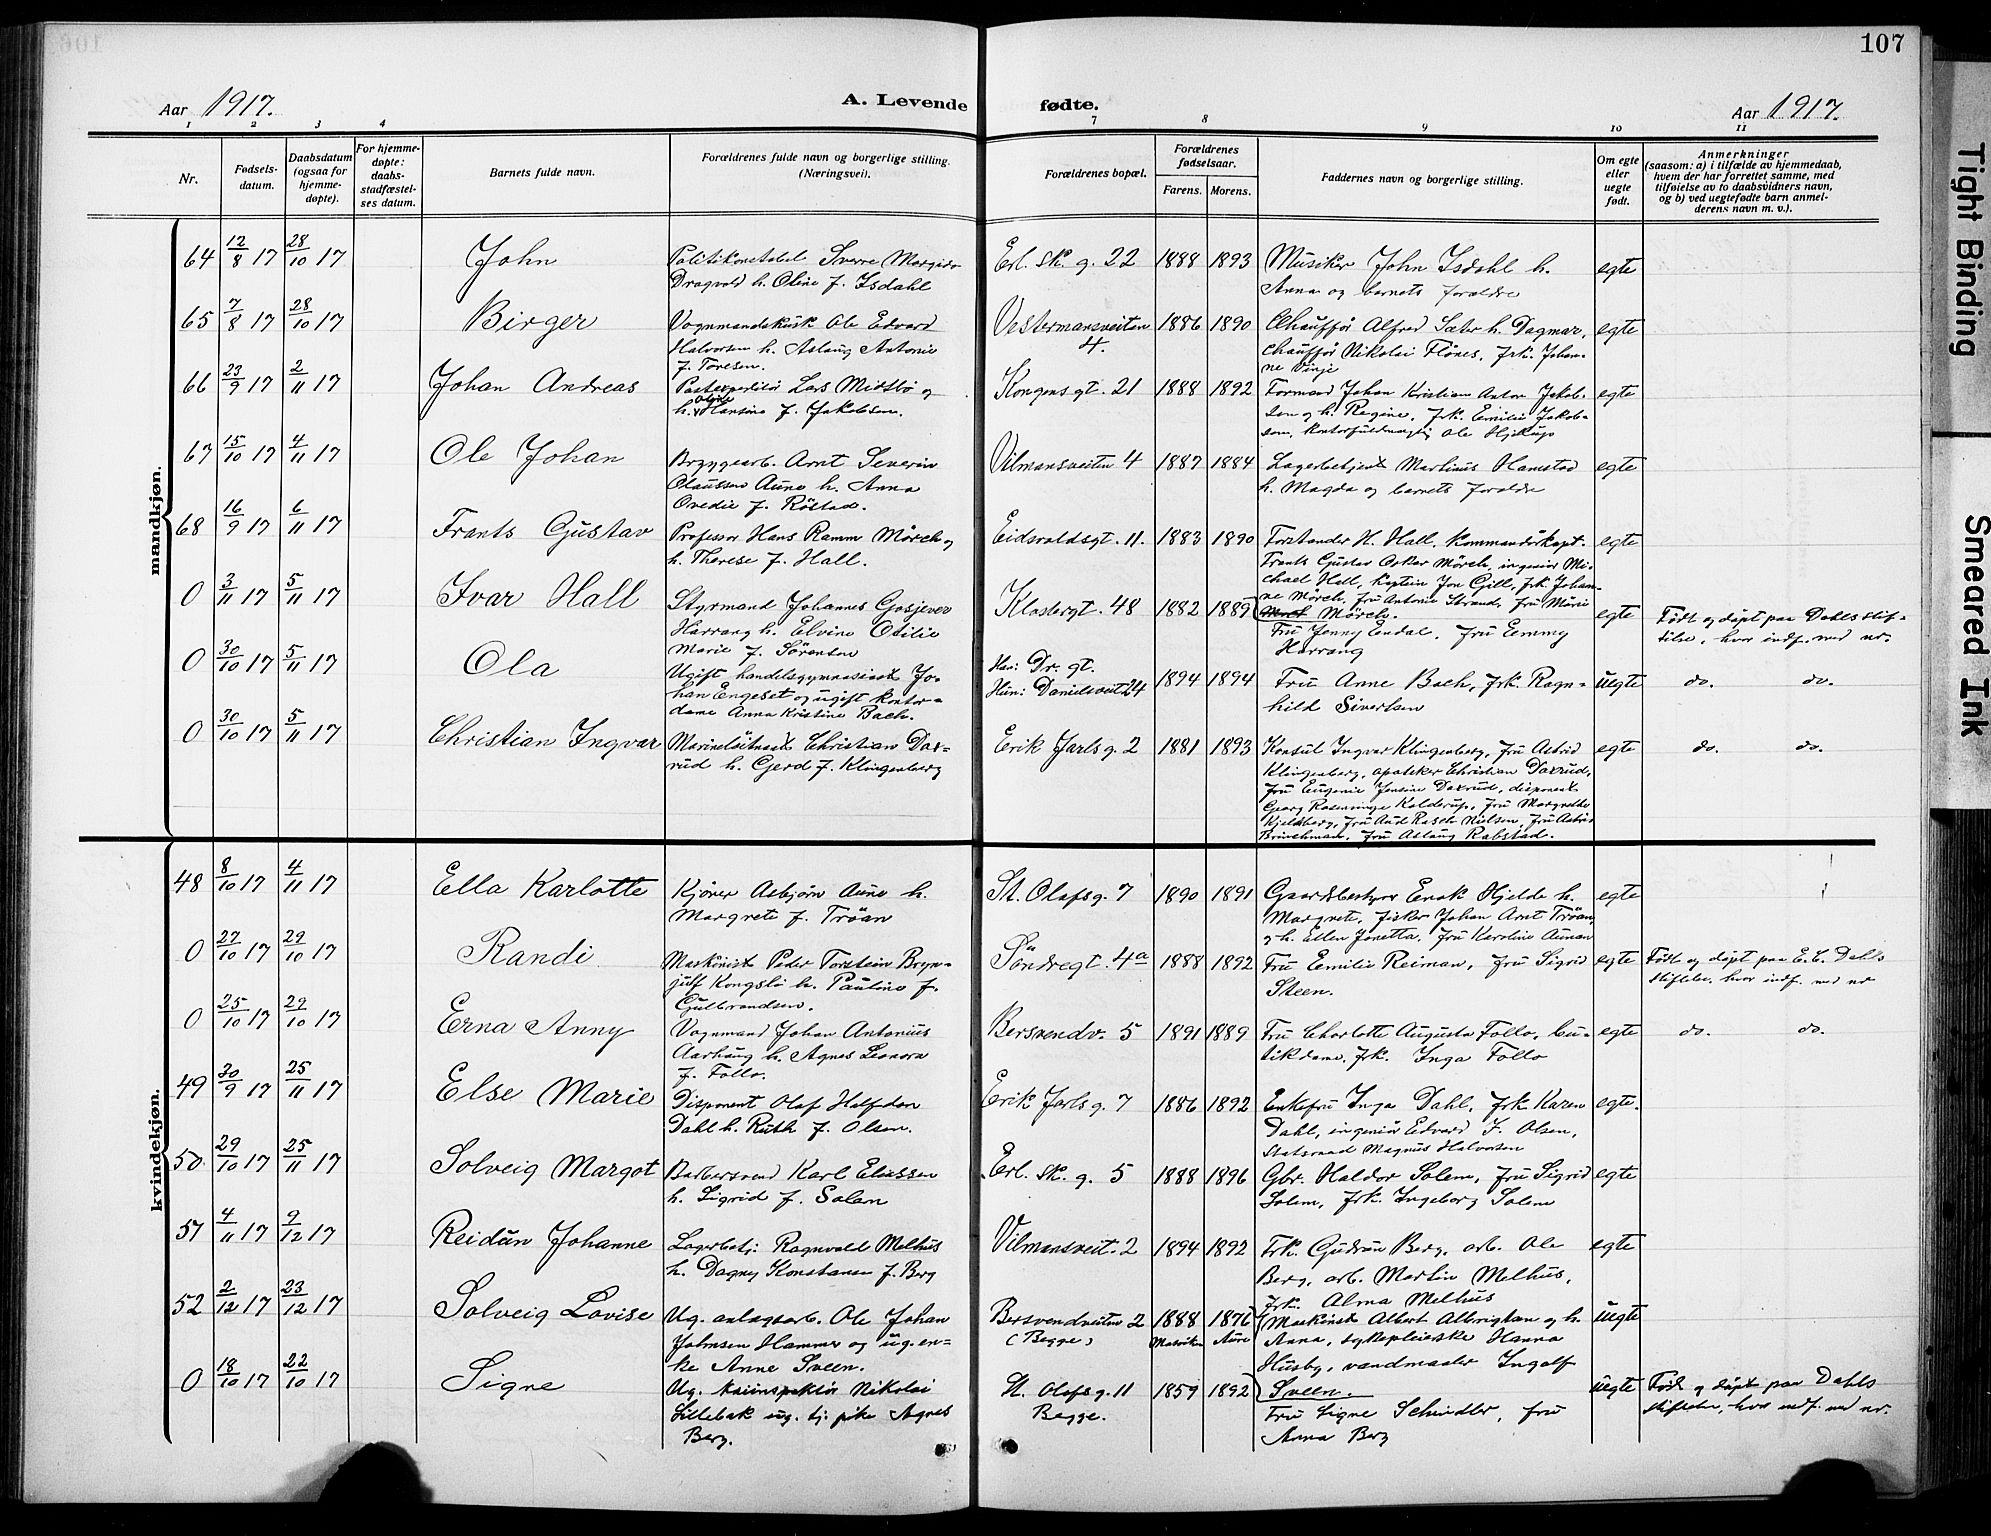 107
Aar 1917. A. Levende fødte. Aar 1917.
1 2 3 4 7 8 9 10 11
Nr.
Fødsels-
datum.
Daabsdatum
(ogsaa for
hjemme-
døpte).
For hjemme-
døpte:
daabs-
stadfæstel-
ses datum.
Barnets fulde navn.
Forældrenes fulde navn og borgerlige stilling.
(Næringsvei).
Forældrenes bopæl.
Forældrenes
fødselsaar.
Farens. Morens.
Faddernes navn og borgerlige stilling.
Om egte
eller
uegte
født.
Anmerkninger
(saasom: a) i tilfælde av hjemmedaab,
hvem der har forrettet samme, med
tilføielse av to daabsvidners navn,
og b) ved uegtefødte barn anmel-
derens navn m. v.).
mandkjøn.
64 12/8 17 28/10 17 John
Politikonstabel Sverre
Dragvold h. Oline f. Isdahl
Erl. Sk. g. 22 1888 1893
Musiker John Isdahl h.
Anna og barnets forældre
egte
65 7/8 17 28/10 17 Birger
Vognmandskusk Ole Edvard
Halvorsen h. Aslaug Antonie
f. Toresen.
Vestermansveiten
4.
1886 1890
Chauffør Alfred Sæter h. Dagmar,
chauffør Nikolai Flönes, frk. Johan-
ne Vinje
egte
66 23/9 17 2/11 17 Johan Andreas
Postexpeditør Lars Midsbö og
h. Oline Hansine f. Jakobsen.
Kongensgt. 21 1888 1892
Formand Johan Kristian Anton Jakob-
sen og h. Regine, frk. Emilie Jakob-
sen, kontorfuldmægtig Ole
egte
67 15/10 17 4/11 17 Ole Johan
Bryggearb. Arnt Severin
Olaussen Aune h. Anna
Ovedie f. Röstad.
Vilmansveiten 4 1887 1884
Lagerbetjent Martinus Hamstad
h. Magda og barnets forældre
egte
68 16/9 17 6/11 17 Frants Gustav
Professor Hans Ramm Mörch og
h. Therese f. Hall.
Eidsvoldsgt. 11. 1883 1890
Forstander H. Hall, Kommandörkapt.
Frants Gustav Oskar Mörch, ingeniör Mi-
chael Hall, Kaptein Jon Gill, frk. Johan-
ne Mörch, fru Antonie Strand, fru Marie
Mörch.
egte
0 3/11 17 5/11 17 Ivar Hall
Styrmand Johannes Gosjever
Harrang h. Elvine Otilie
Marie f. Sörensen
Klostergt. 48 1882 1889
Fru Jenny Endal, fru Emmy
Harrang
egte
Födt og döpt paa Dahls stif-
telse, hvor indf. med nr.
0 30/10 17 5/11 17 Ola
Ugift handelsgymnasiast Jo-
han Engeset og ugift kontor-
dame Anna Kristine Bach.
Han: Dr. gt.
Hun: Danielsveit 24
1894 1894
Fru Anne Bach, frk. Ragn-
hild Sivertsen
uegte do. do.
0 30/10 17 5/11 17 Christian Ingvar
Marinelöitnant Christian Dax-
rud h. Gerd f. Klingenberg
Erik Jarls g. 2 1881 1893
Konsul Ingvar Klingenberg, fru Astrid
Klingenberg, apoteker Christian Daxrud,
fru Eugenie Jensine Daxrud, disponent
Georg Rosenvinge Kolderup, fru Margrethe
Kjeldsberg, fru Aud Rasch Nielsen, fru Astrid
Brinchman, fru Aslaug Rabstad.
egte do. do.
kvindekjøn.
48 8/10 17 4/11 17 Ella Karlotte
Kjörer Asbjörn Aune h.
Margrete f. Tröan
St. Olafsg. 7 1890 1891
Gaardbestyrer Enok Hjelde h.
Margrete, fisker Johan Arnt Tröan,
og h. Ellen Jonetta, fru Karoline Aunan
egte
0 27/10 17 29/10 17 Randi
Maskinist Peder Torstein Bryn-
julf Kongsli h. Pauline f.
Gulbrandsen.
Söndregt. 4a 1888 1892
Fru Emilie Reiman, fru Sigrid
Steen.
egte
Födt og döpt paa E. C. Dahls
stiftelse, hvor indf. med nr
0 25/10 17 29/10 17 Erna Anny
Vognmand Johan Antonius
Aarhaug h. Agnes Leonora
f. Follo.
Bersvendv. 5 1891 1889
Fru Charlotte Augusta Follo, bu-
tikdame, frk. Inga Follo
egte do. do.
49 30/9 17 25/11 17 Else Marie
Disponent Olaf Halfdan
Dahl h. Ruth f. Olsen.
Erik Jarls g. 7 1886 1892
Enkefru Inga Dahl, frk Karen
Dahl, ingeniör Edvard F. Olsen,
Statsraad Magnus Halvorsen
egte.
50. 29/10 17 25/11 17 Solveig Margot
Barbersvend Karl Eliassen
h. Sigrid f. Solem
Erl. Sk. g. 5 1888 1896
Gbr. Haldor Solem, fru Sigrid
Solem, frk. Ingeborg Solem
egte
51 4/11 17 9/12 17 Reidun Johanne
Lagerbetj. Ragnvald Melhus
h. Dagny Konstanse f. Berg
Vilmansveit. 2 1894 1892
Frk. Gudrun Berg, arb. Ole
Berg, arb. Martin Melhus,
frk. Alma Melhus
egte
52 2/12 17 23/12 17 Solveig Lovise
Ug. anlægsarb. Ole Johan
Johnsen Hammer og ug. en-
ke Anne Sveen.
Bersvendveiten 2
(Begge)
1888 1876
Aure
Maskinist Albert Albrigtsen og h.
Anna, sykepleierske Hanna
Husby, vandmaaler Ingolf
Sveen.
uegte
0 18/10 17 22/10 17 Signe
Ug. kaiinspektör Nikolai
Lillebak ug. tj. pike Agnes
Berg.
St. Olafsg. 11
Begge.
1859 1892
Fru Signe Schindler, fru
Anna Berg
uegte
Födt og döpt paa Dahls
stiftelse, hvor indf. med nr.
Tight Binding
Smeared Ink